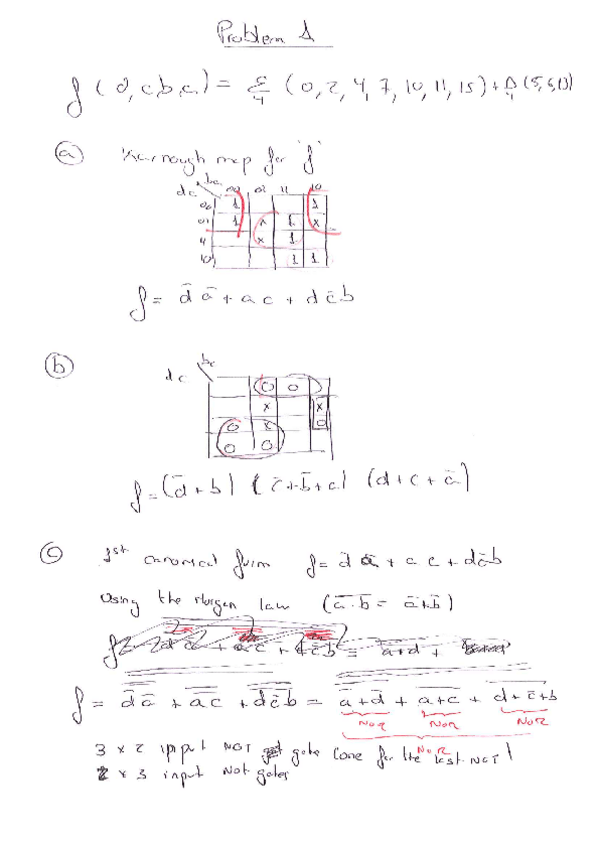 Problem 1
f(d,c,b,a) = Σ4 (0,2,4,7,10,11,15) + Δ4 (5,6,13)
a Karnough map for 'f'
dc ba 00 01 11 10
00 1 1
01 1 x 1 x
11 x 1
10 1 1
f = d̄ā + ac + dc̄b
b
dc ba
0 0
x x
0 x 0
0 0
f = (d̄+b) (c̄+b̄+a) (d+c+ā)
c 1st canonical form f = d̄ā + ac + dc̄b
Using the Morgan law (a̅.̅b̅ = ā+b̄)
f = d̄ā + ac + dc̄b = a+d + a̅+c̅ + d+c̄+b
NOR NOR NOR
3 x 2 input NOT gate (one for the last NOT)
NOR
2 x 3 input Not gates